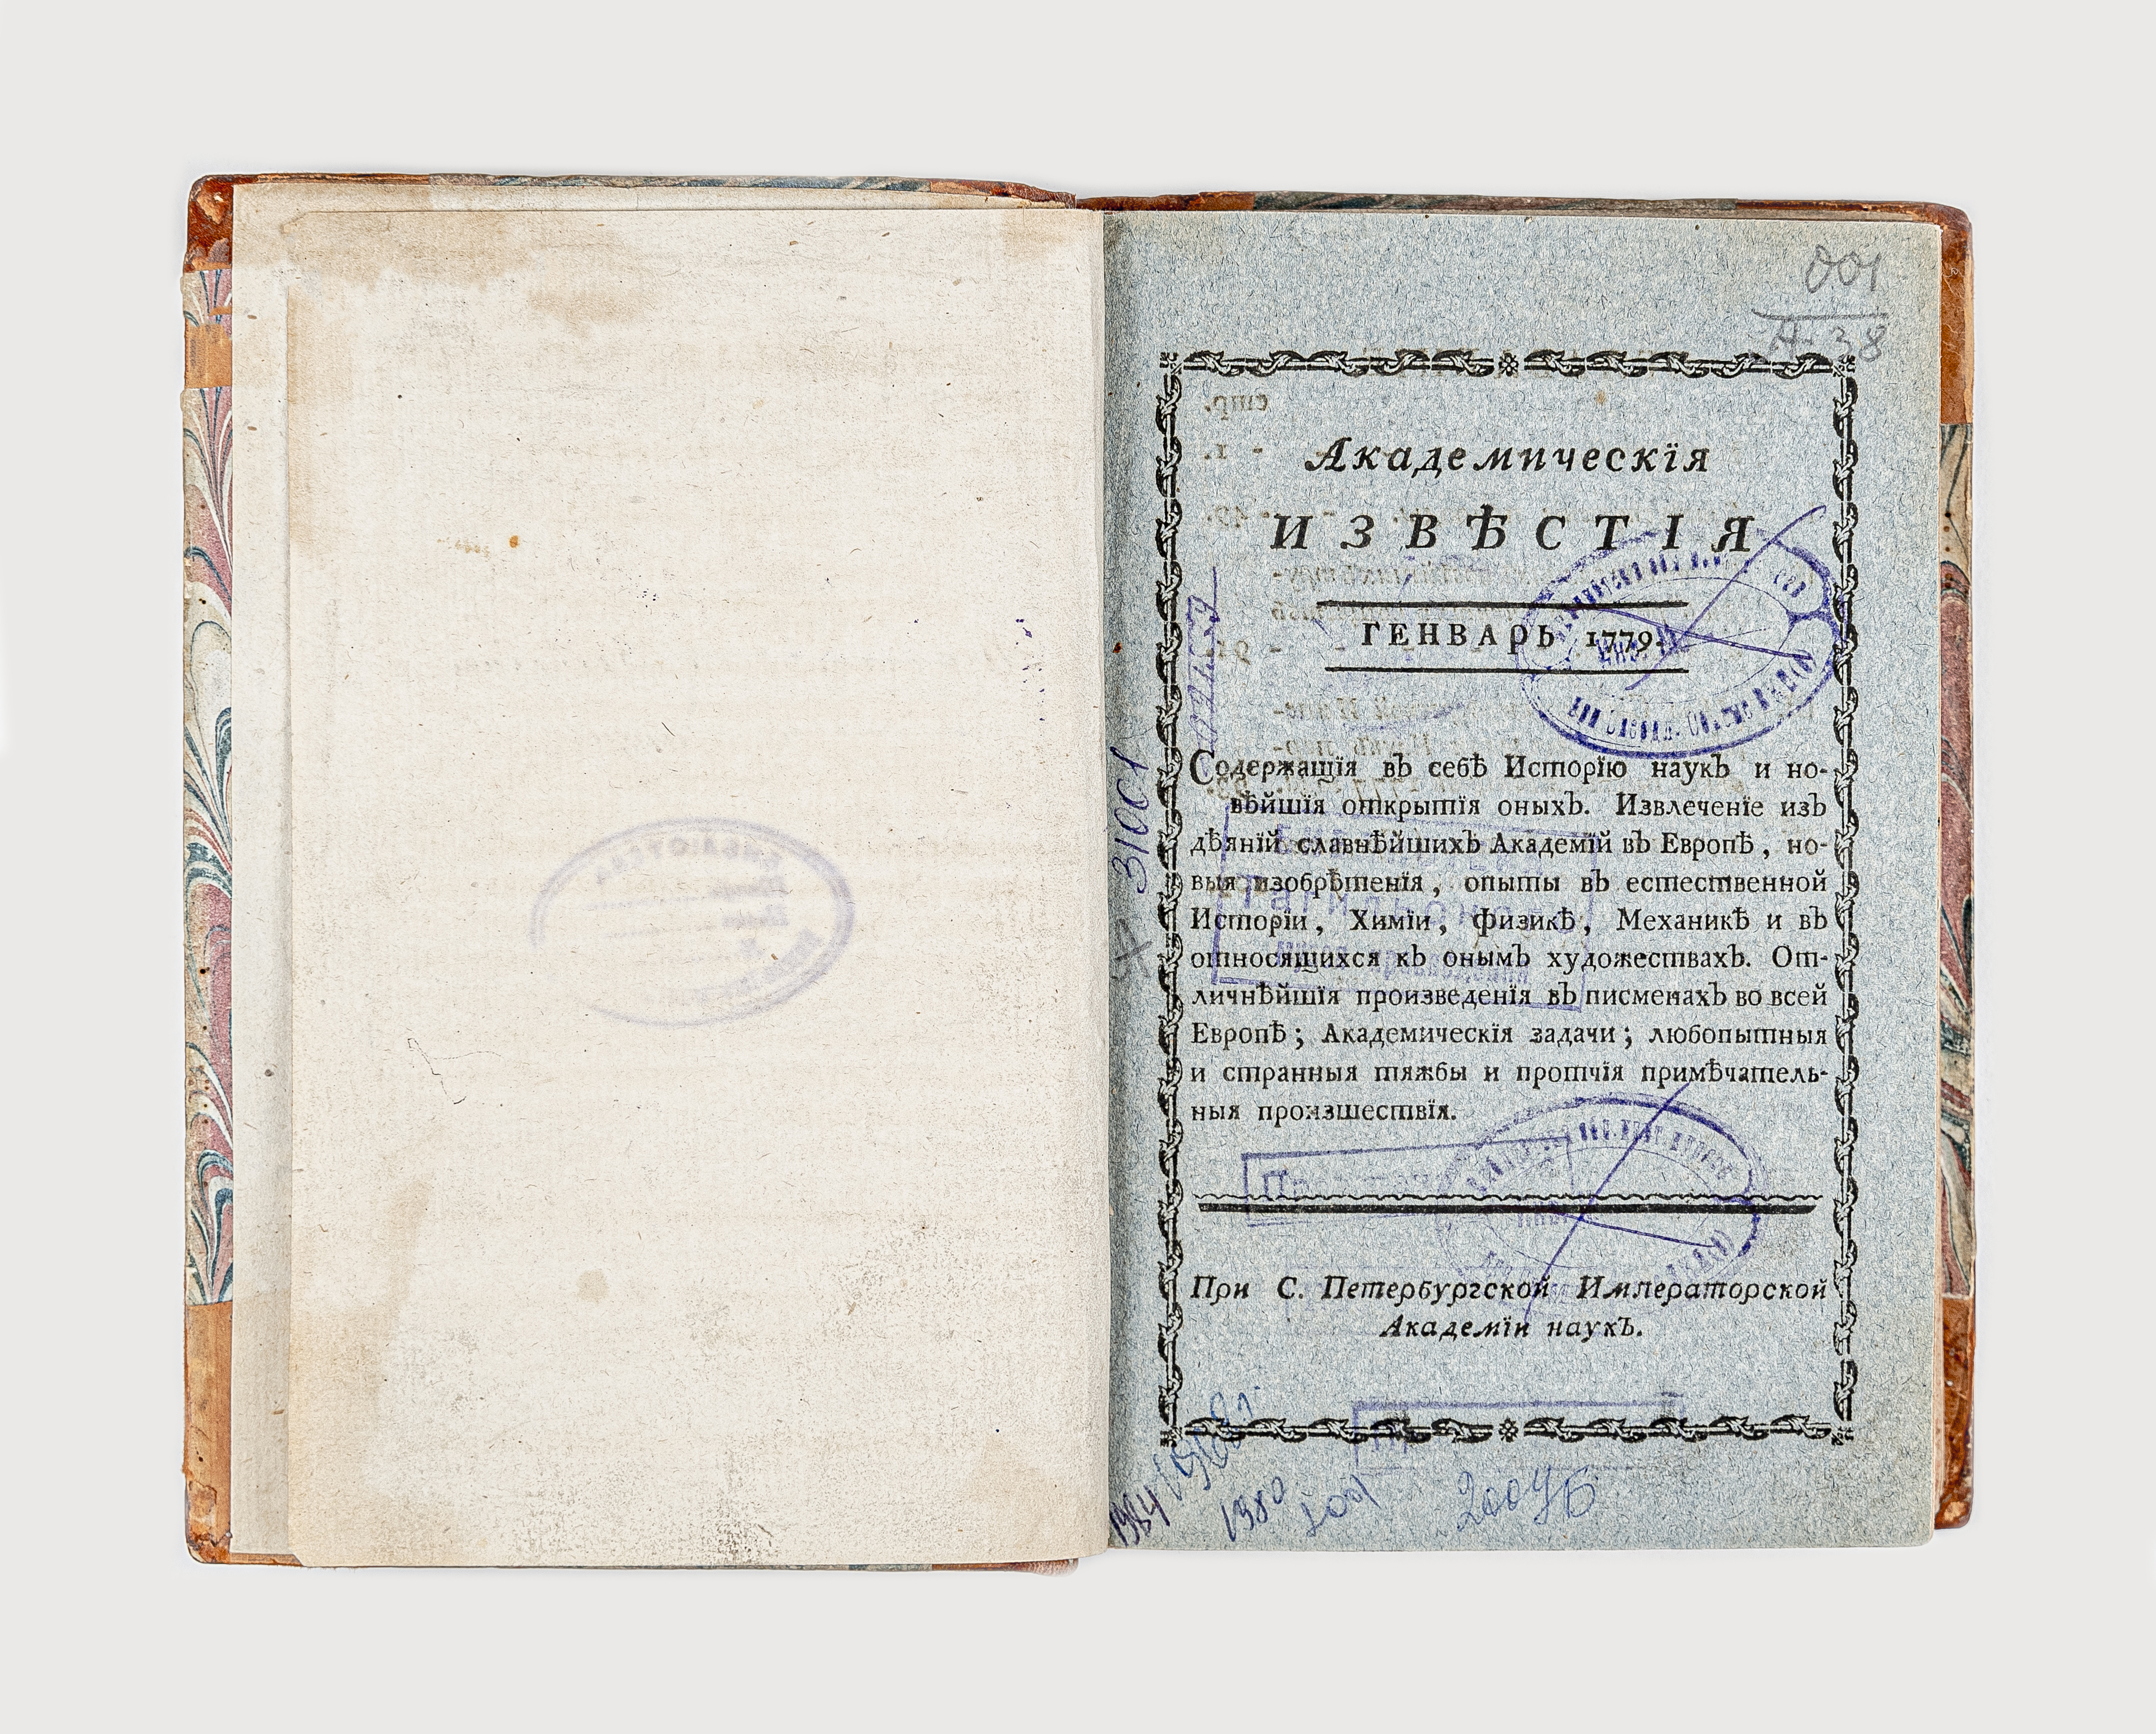 001
А-38
Академическїя
ИЗВѢСТІЯ
ГЕНВАРЬ 1779.
Содержащїя въ себѣ Исторїю наукъ и но-
вѣйшїя открытїя оныхъ. Извлеченїе изъ
дѣянїй славнѣйшихъ Академїй въ Европѣ, но-
выя изобрѣтенїя, опыты въ естественной
Исторїи, Химїи, физикѣ, Механикѣ и въ
относящихся къ онымъ художествахъ. От-
личнѣйшїя произведенїя въ писменахъ во всей
Европѣ; Академическїя задачи; любопытныя
и странныя тяжбы и протчїя примѣчатель-
ныя произшествїя.
При С. Петербургской Императорской
Академїи наукъ.
31001
1984
1980
2004Б